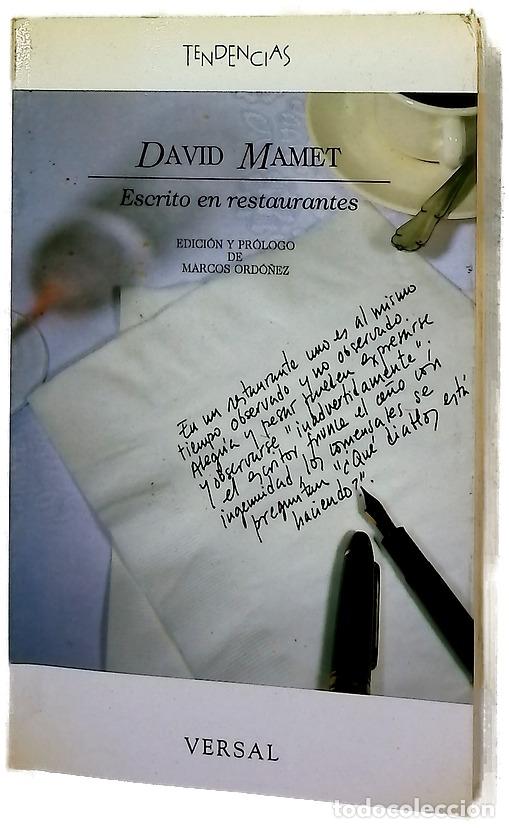 TENDENCIAS
DAVID MAMET
Escrito en restaurantes
EDICIÓN Y PRÓLOGO
DE
MARCOS ORDÓÑEZ
En un restaurante uno es al mismo
tiempo observado y no observado.
Alegría y pesar pueden expresarse
y observarse "inadvertidamente".
el escritor frunce el ceño con
ingenuidad los comensales se
preguntan "¿Qué diablos está
haciendo?".
VERSAL
todocoleccion